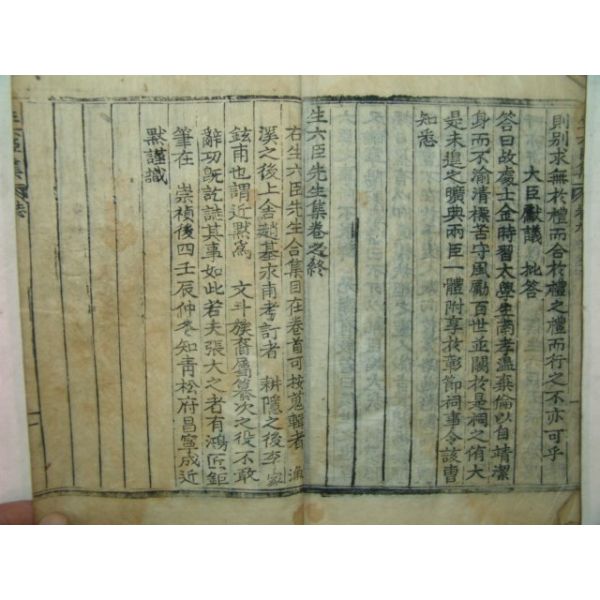 則別求無於禮而合於禮之禮而行之不亦可乎
大臣獻議 批答
答曰故處士金時習太學生南孝溫乘倫以自靖潔
身而不渝清標苦守風勵百世並闕於是祠之侑大
是未遑之曠典兩臣一體附享於彰節祠事令該曹
知悉
生六臣先生集卷之終
右生六臣先生合集目在卷首可按蒐輯者 漁
溪之後上舍趙基永甫考訂者 耕隱之後李家
鉉甫也謂近默寫 文斗族舊屬纂次之役不敢
辭功旣訖誌其事如此若夫張大之者有鴻匠鉅
筆在 崇禎後四壬辰仲冬知靑松府昌寧成近
默謹識